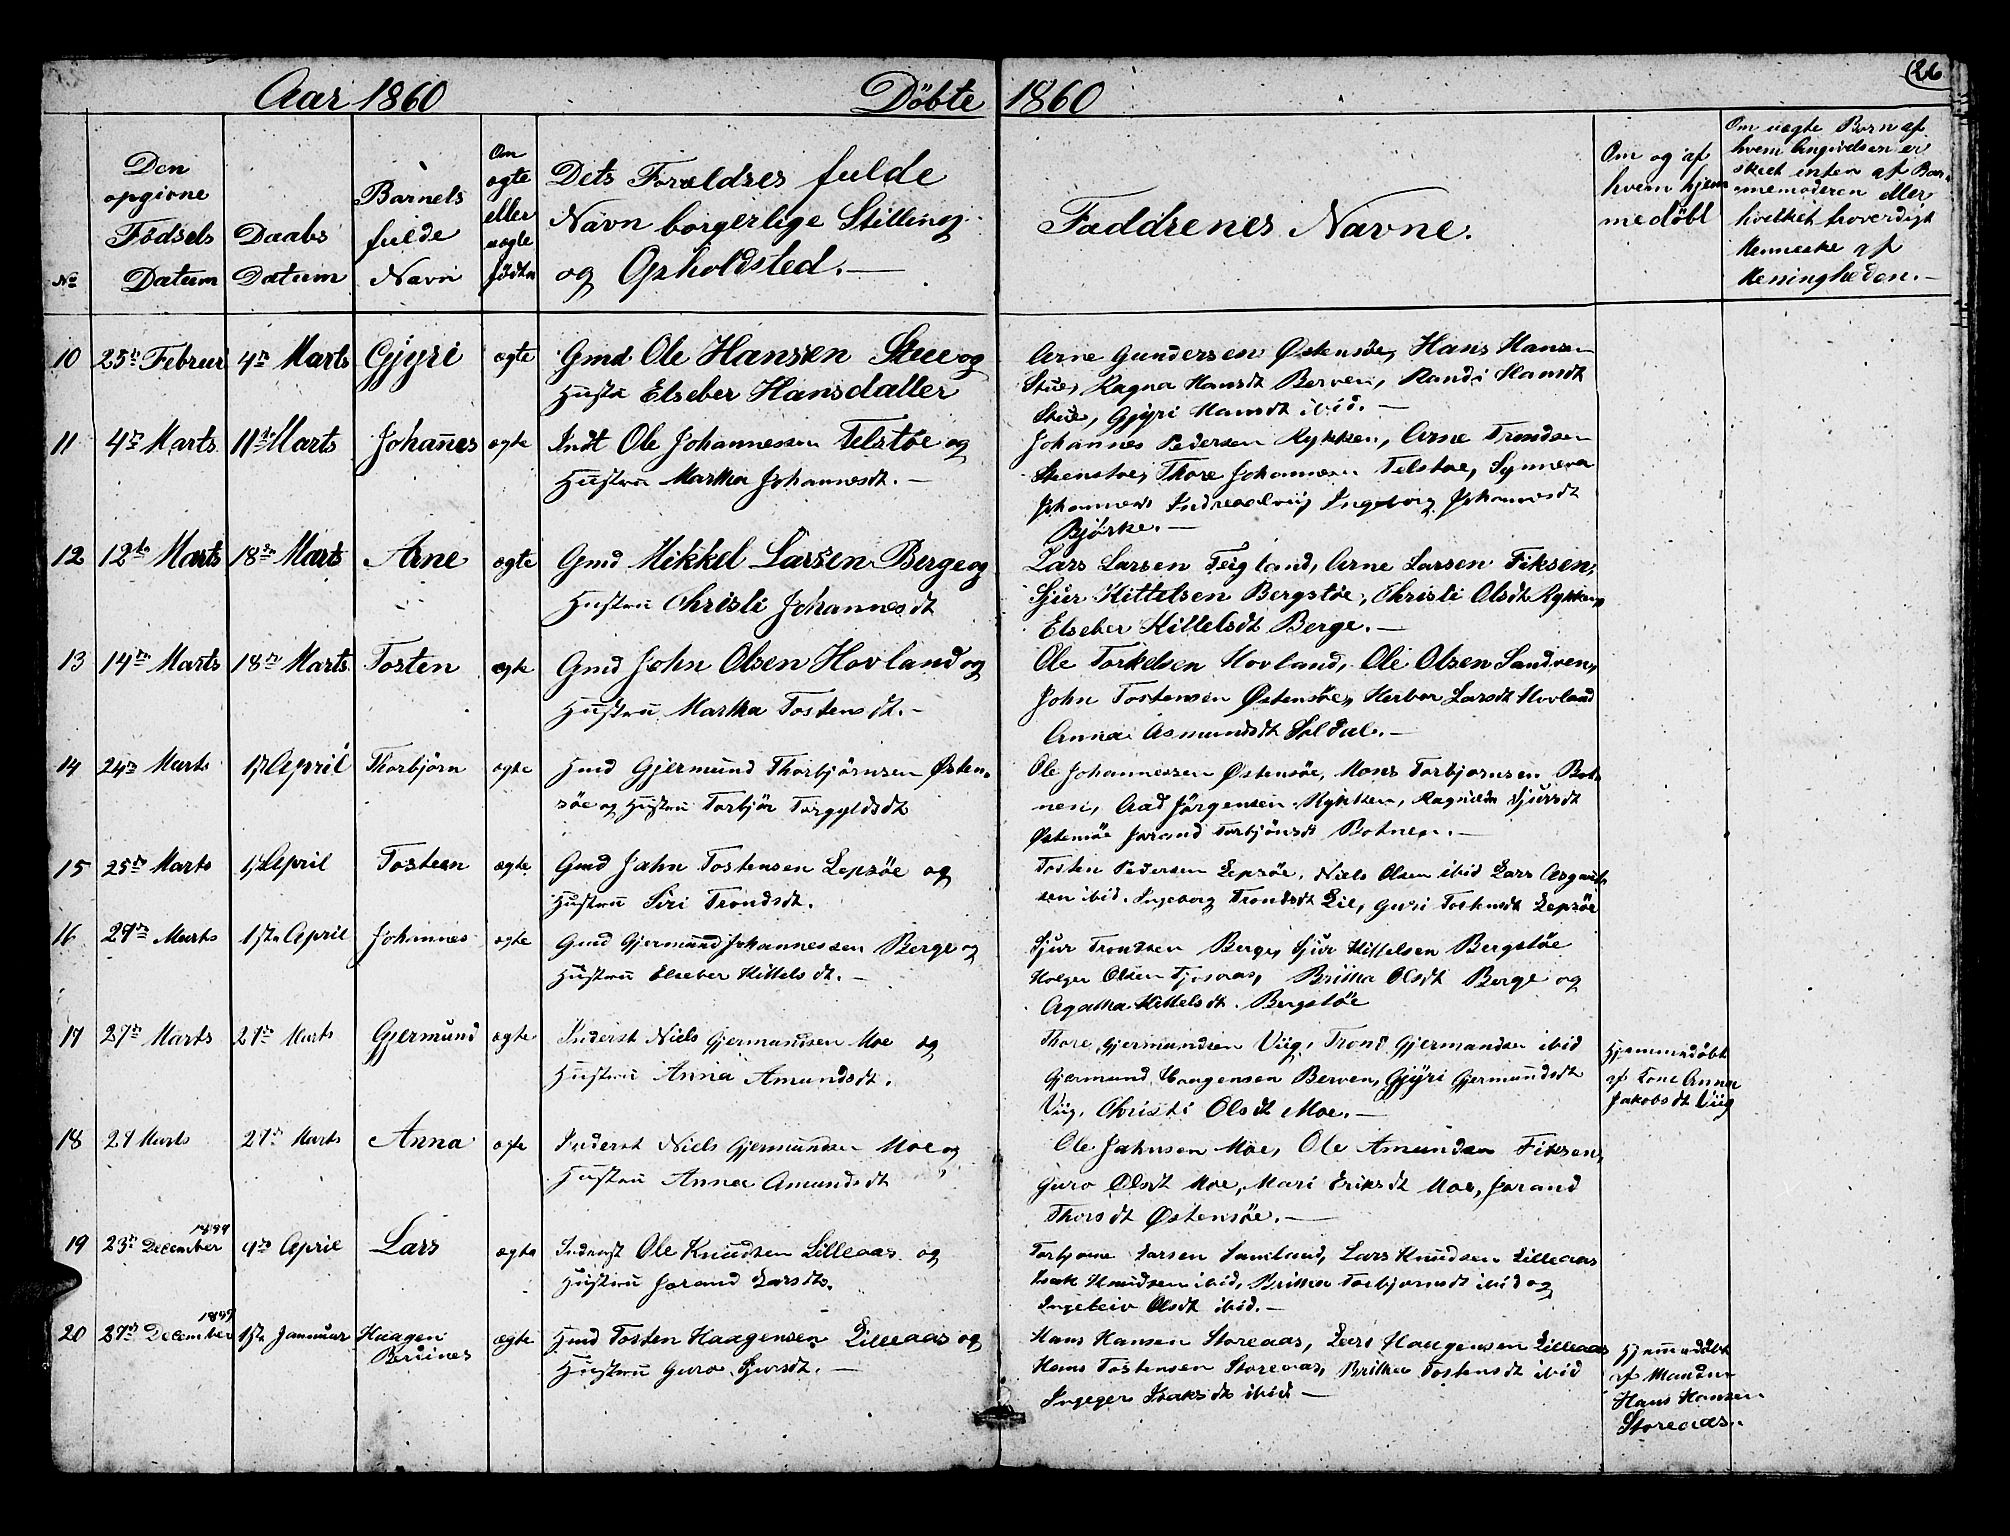 26
Aar 1860 Döbte 1860
No
Den opgivne Födsels Datum
Daabs Datum
Barnets fulde Navn
Om ægte eller uægte födte
Dets Forældres fulde Navn borgerlige Stilling og Opholdsted.
Faddrenes Navne.
Om og af hvem hjemmedöbt
Om uægte Barn af hvem Angivelsen er skeet enten af Barnemoderen eller hvilket troverdigt Menneske af Meningheden.
10 25de Februar 4de Marts Gjyri ægte Gmd Ole Hansen Stue og
Hustru Elseber Hansdatter
Arne Gundersen Östensöe, Hans Hansen
Stue, Ragna Hansdt Berven, Randi Hansdt
Stue, Gjyri Hansdt ibid.
11 4de Marts 11te Marts Johañes ægte Indt Ole Johannessen Telstøe og
Hustru Martha Johannesdt.
Johannes Pedersen Rykken, Arne Trondsen
Steenstøe, Thore Johannesen Telstøe, Synneva
Ingeborg Johannesdt
Bjørke.
12 12te Marts 18de Marts Arne ægte Gmd Mikkel Larsen Berge og
Hustru Christi Johannesdt
Lars Larsen Teigland, Arne Larsen Fiksen,
Sjur Kittelsen Bergstøe, Christi Olsdt Rykken,
Elseber Kittelsdt Berge.
13 14de Marts 18de Marts Tosten ægte Gmd John Olsen Hovland og
Hustru Martha Tostensdt.
Ole Torkelsen Hovland, Ole Olsen Sandven,
John Tostensen Østensöe, Herbor Larsdt Hovland
Anna Asmundsdt Soldal.
14 24de Marts 1ste April Thorbjørn ægte Hmd Gjermund Thorbjørnsen Østen-
söe og Hustru Torbjör Torgyldsdt
Ole Johannessen Østensöe, Mons Torbjørnsen Bot-
nen, Aad Jörgensen Rykken, Ragnilda Sjursdt
Østensöe Jorand Torbjönsdt Botnen.
15 25de Marts 1ste April Tosteen ægte Gmd John Tostensen Lepsöe og
Hustru Siri Trondsdt.
Tosten Pedersen Lepsöe, Niels Olsen ibid Lars Asgaut-
sen ibid. Ingeborg Trondsdt Lie, Guri Tostensdt Lepsöe
16 29de Marts 1ste April Johannes ægte Gmd Gjermund Johannessen Berge og
Hustru Elseber Kittelsdt.
Sjur Trondsen Berge, Sjur Kittelsen Bergstöe
Holger Olsen Tjosaas, Britha Olsdt Berge og
Agatha Kittelsdt. Bergstöe
17 27de Marts 27de Marts Gjermund ægte Inderst Niels Gjermundsen Moe og
Hustru Anna Amundsdt.
Thore Gjermundsen Viig, Trond Gjermundsen ibid
Gjermund Haagensen Berven, Gjyri Gjermundsdt
Viig, Christi Olsdt Moe.
Hjemmedöbt
af Kone Anna
Jakobsdt Viig
18 27 Marts 27de Marts Anna ægte Inderst Niels Gjermundsen Moe og
Hustru Anna Amundsdt
Ole Johnsen Moe, Ole Amundsen Fiksen,
Guro Olsdt Moe, Mari Eriksdt Moe, Jorand
Thorsdt Østensöe.
19 23de December 9de April Lars ægte Inderst Ole Knudsen Lilleaas og
Hustru Jorand Larsdt.
Torbjørn Larsen, Lars Knudsen Lilleaas
Isak Knudsen ibid, Britha Torbjørnsdt ibid og
Ingeleiv Olsdt ibid.
20 27de December 1ste Januar Haagen
Beruines ægte Hmd Tosten Haagensen Lilleaas og
Hustru Guro Sjursdt.
Hans Hansen Storeaas, Lars Haagensen Lilleaas
Hans Tostensen Storeaas, Britha Tostensdt ibid
Ingeger Isaksdt ibid
Hjemmedöbt
af Manden
Hans Hansen
Storeaas.